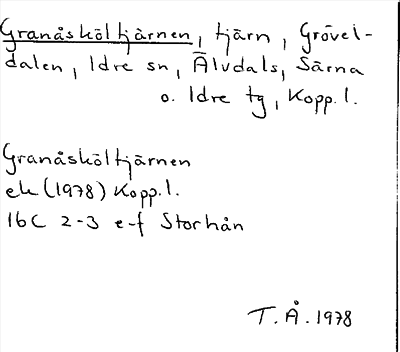 Granåsköltjärnen, tjärn, Grövel-
dalen, Idre sn, Älvdals, Särna
o. Idre tg, Kopp.l.
Granåsköltjärnen
ek (1978) Kopp.l.
16C 2-3 e-f Storhån
T.Å. 1978